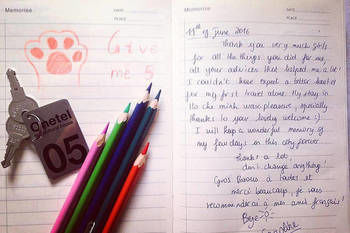 Memories
DATE
PLACE
Give
me 5
05
Memories
DATE
PLACE
11th of June 2016
Thank you very much girls
for all the things you did for me,
all your advices that helped me a lot!
I couldn't have expect a better hostel
for my first travel alone. My stay in
Ho chi minh was pleasure, specially
thanks to your lovely welcome :)
I will keep a wonderful memory of
my few days in this city forever
thanks a lot,
don't change anything!
Gros bisous à toutes et
merci beaucoup, je vous
recommanderai à mes amis français!
Bye